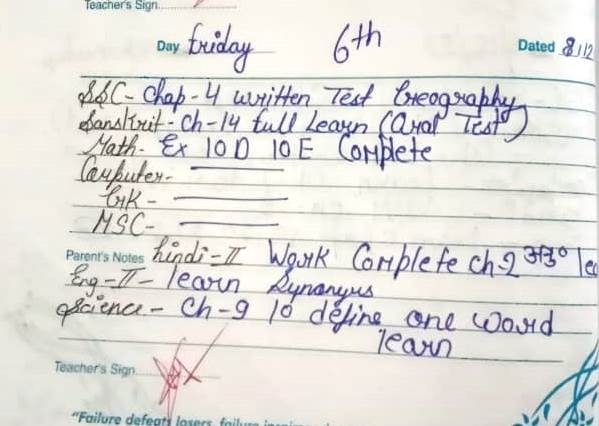 Teacher's Sign.
Day Friday 6th Dated 8/12
SSC- Chap-4 written Test Greography
Sanskrit- Ch-14 full Learn (Oral Test)
Math- Ex 10 D 10 E Complete
Computer-
GK-
MSC-
Parent's Notes hindi-II Work Complete ch-2 अनु०
Eng-II- learn Synonyms
Science- Ch-9 10 define one word
learn
Teacher's Sign.
"Failure defeats losers, failure